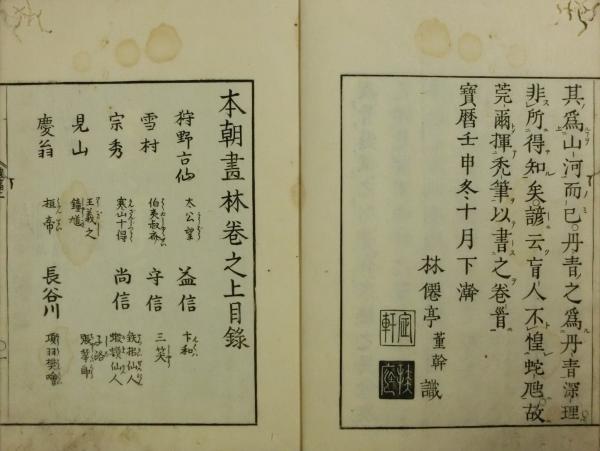 其爲山河而已丹青之爲丹青深理
非所得知矣諺云盲人不惶蛇虺故
莞爾揮禿筆以書之卷首
寶曆壬申冬十月下澣
林僊亭董幹識
本朝畫林卷之上目錄
狩野古仙 太公望 益信 卞和
雪村 伯夷叔齊 守信 三笑
宗秀 寒山十得 尚信 蝦蟇仙人
見山 王羲之 鍾馗 子路
慶翁 桓帝 長谷川 項羽樊噲